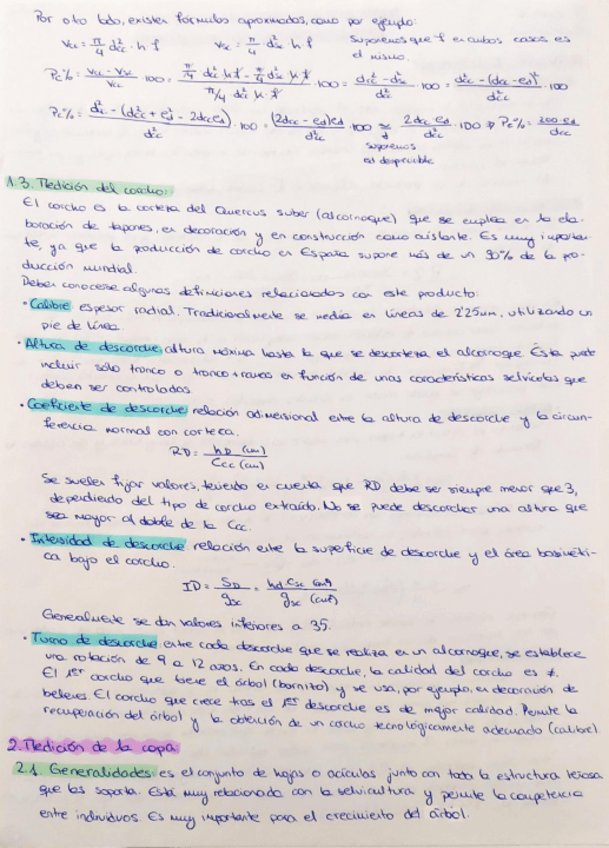 Por otro lado, existen fórmulas aproximadas, como por ejemplo:
Vcc = π/4 d²cc · h · f    Vsc = π/4 · d²sc · h · f    Suponemos que f en ambos casos es
el mismo.
Pc% = (Vcc - Vsc)/Vcc · 100 = (π/4 d²cc h f - π/4 d²sc h f)/(π/4 d²cc h f) · 100 = (d²cc - d²sc)/d²cc · 100 = (d²cc - (dcc - ed)²)/d²cc · 100
Pc% = (d²cc - (d²cc + e²d - 2dcc ed))/d²cc · 100 = ((2dcc - ed)ed)/d²cc · 100 ≈ (2dcc ed)/d²cc · 100 ⇒ Pc% = (200 · ed)/dcc
suponemos
es despreciable
1.3. Medición del corcho:
El corcho es la corteza del Quercus suber (alcornoque) que se emplea en la ela-
boración de tapones, en decoración y en construcción como aislante. Es muy importan-
te, ya que la producción de corcho en España supone más de un 30% de la pro-
ducción mundial.
Deben conocerse algunas definiciones relacionadas con este producto:
· Calibre: espesor radial. Tradicionalmente se medía en líneas de 2'25mm, utilizando un
pie de línea.
· Altura de descorche: altura máxima hasta la que se descorteza el alcornoque. Ésta puede
incluir sólo tronco o tronco+ramas en función de unas características selvícolas que
deben ser controladas.
· Coeficiente de descorche: relación adimensional entre la altura de descorche y la circun-
ferencia normal con corteza.
RD = hD (cm)/Ccc (cm)
Se suelen fijar valores, teniendo en cuenta que RD debe ser siempre menor que 3,
dependiendo del tipo de corcho extraído. No se puede descorchar una altura que
sea mayor al doble de la Ccc.
· Intensidad de descorche: relación entre la superficie de descorche y el área basimétri-
ca bajo el corcho.
ID = SD/gsc = hd · Csc (cm²)/gsc (cm²)
Generalmente se dan valores inferiores a 35.
· Turno de descorche: entre cada descorche que se realiza en un alcornoque, se establece
una rotación de 9 a 12 años. En cada descorche, la calidad del corcho es ≠.
El 1er corcho que tiene el árbol (bornizo) y se usa, por ejemplo, en decoración de
belenes. El corcho que crece tras el 1er descorche es de mejor calidad. Permite la
recuperación del árbol y la obtención de un corcho tecnológicamente adecuado (calibre)
2. Medición de la copa:
2.1. Generalidades: es el conjunto de hojas o acículas junto con toda la estructura leñosa
que las soporta. Está muy relacionada con la selvicultura y permite la competencia
entre individuos. Es muy importante para el crecimiento del árbol.